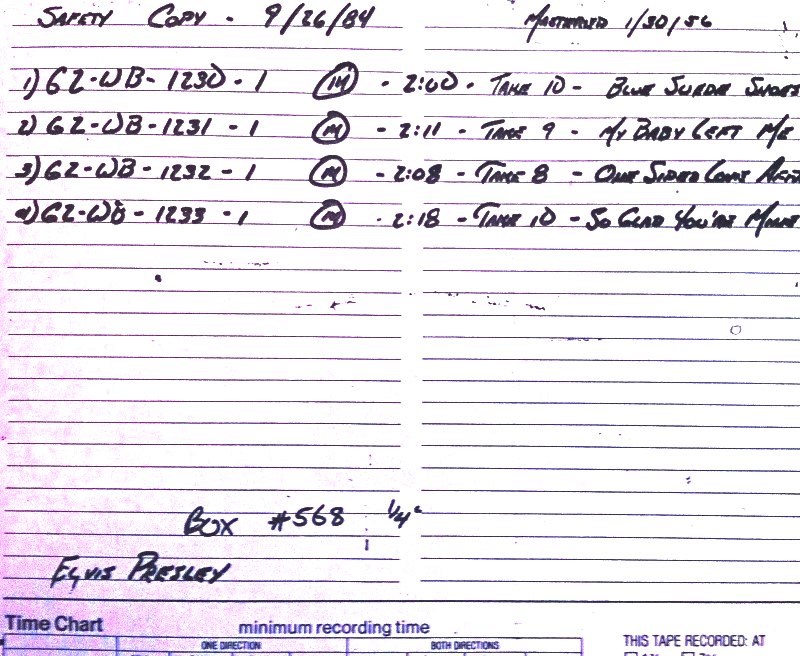 Safety Copy - 9/26/84 Mastered 1/30/56
1) G2-WB-1230-1 (M) - 2:00 - Take 10 - Blue Suede Shoes
2) G2-WB-1231-1 (M) - 2:11 - Take 9 - My Baby Left Me
3) G2-WB-1232-1 (M) - 2:08 - Take 8 - One Sided Love Affa
4) G2-WB-1233-1 (M) - 2:18 - Take 10 - So Glad You're Mine
Box #568 1/4"
Elvis Presley
Time Chart minimum recording time
ONE DIRECTION BOTH DIRECTIONS
THIS TAPE RECORDED: AT